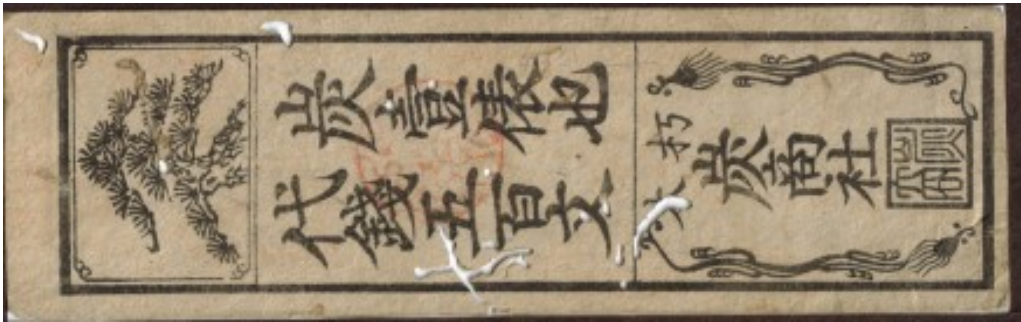 炭壹俵也
代錢五百文
杤木
炭商社